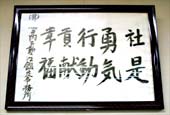 社是
勇気
行動
貢献
幸福